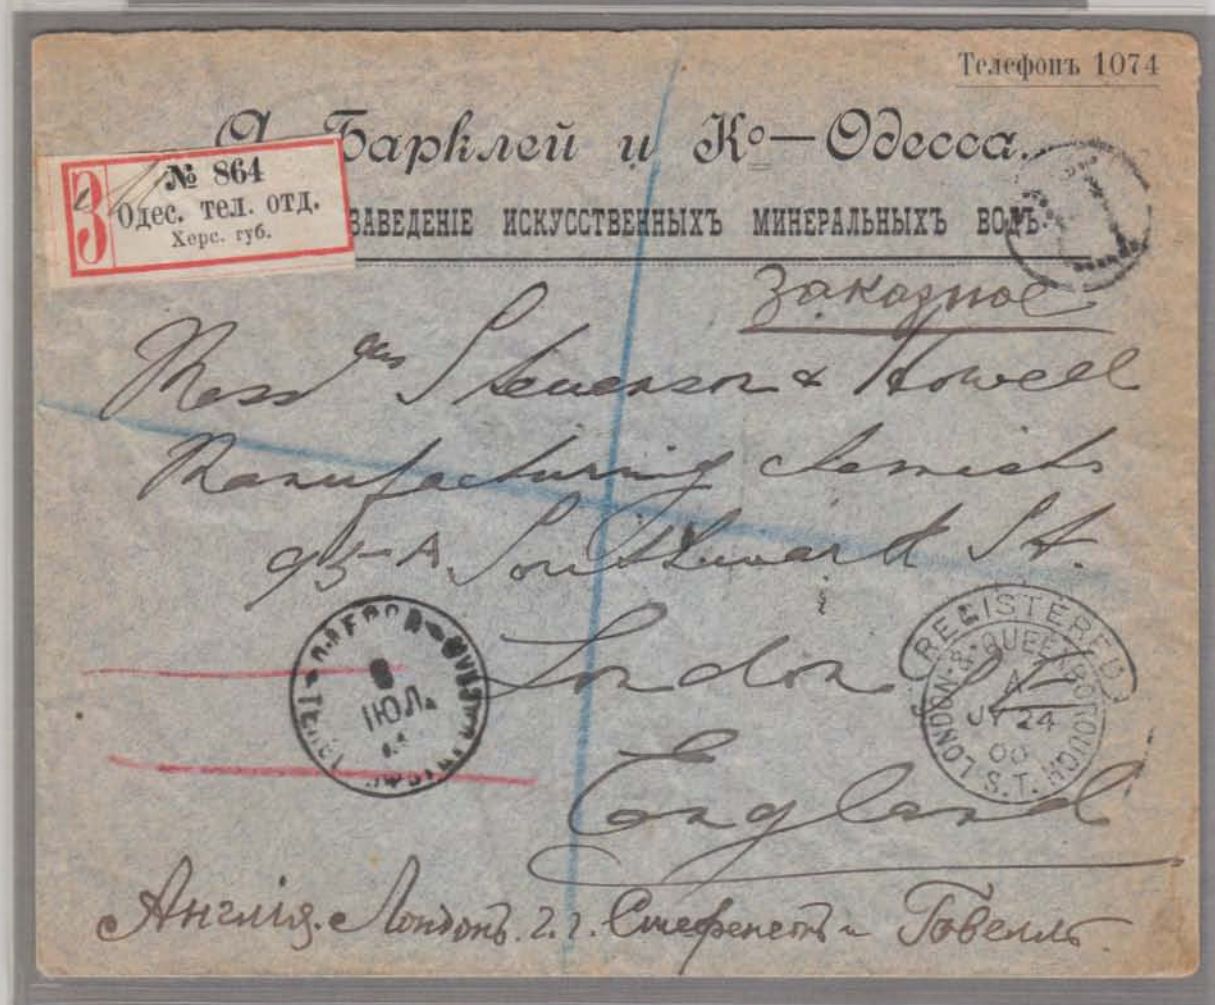 Телефонъ 1074
Барклей и Ко—Одесса.
№ 864
З
Одес. тел. отд.
Херс. губ.
ЗАВЕДЕНІЕ ИСКУССТВЕННЫХЪ МИНЕРАЛЬНЫХЪ ВОДЪ.
Заказное
Messrs Stevenson & Howell
Manufacturing Chemists
95-A Southwark St.
London
England
ІЮЛ.
REGISTERED
LONDON. S.T.
A
JY 24
00
Англія. Лондонъ. г.г. Стефенсонъ и Говелль.